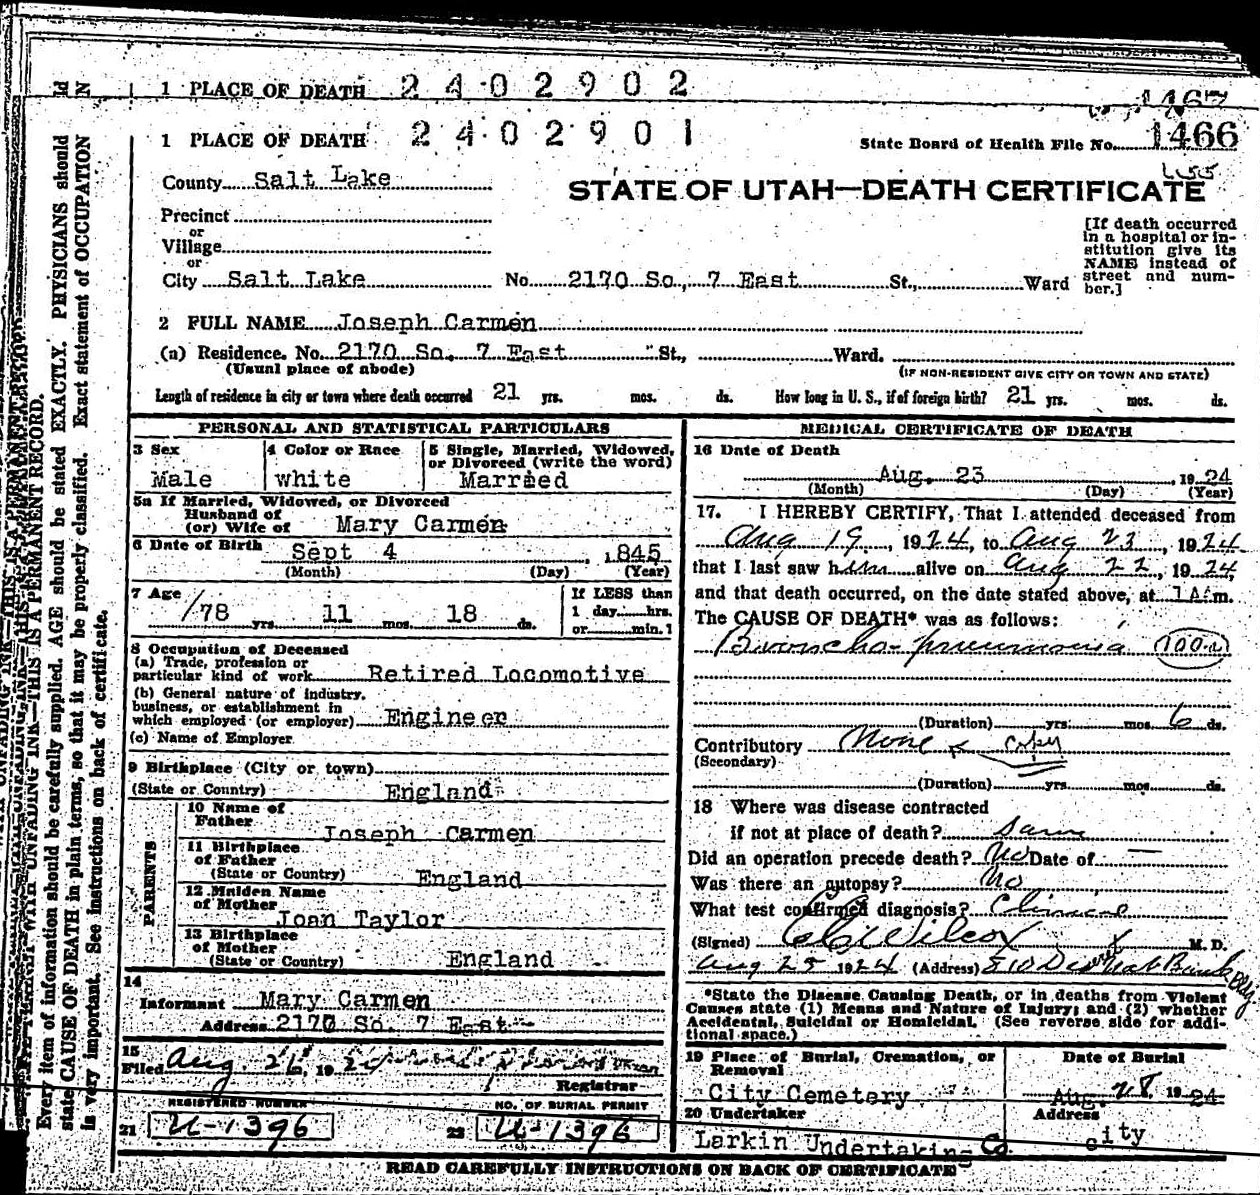 1 PLACE OF DEATH 2402902
1467
1 PLACE OF DEATH 2402901
State Board of Health File No. 1466
County Salt Lake
STATE OF UTAH—DEATH CERTIFICATE
Precinct
or
Village
or
City Salt Lake No. 2170 So., 7 East St., Ward
[If death occurred
in a hospital or in-
stitution give its
NAME instead of
street and num-
ber.]
2 FULL NAME Joseph Carmen
(a) Residence. No. 2170 So. 7 East St., Ward.
(Usual place of abode) (IF NON-RESIDENT GIVE CITY OR TOWN AND STATE)
Length of residence in city or town where death occurred 21 yrs. mos. ds. How long in U. S., if of foreign birth? 21 yrs. mos. ds.
PERSONAL AND STATISTICAL PARTICULARS
3 Sex
Male
4 Color or Race
white
5 Single, Married, Widowed,
or Divorced (write the word)
Married
5a If Married, Widowed, or Divorced
Husband of
(or) Wife of Mary Carmen
6 Date of Birth Sept 4, 1845
(Month) (Day) (Year)
7 Age
78 yrs. 11 mos. 18 ds.
If LESS than
1 day hrs.
or min.?
8 Occupation of Deceased
(a) Trade, profession or
particular kind of work Retired Locomotive
(b) General nature of industry,
business, or establishment in
which employed (or employer) Engineer
(c) Name of Employer
9 Birthplace (City or town)
(State or Country) England
PARENTS
10 Name of
Father Joseph Carmen
11 Birthplace
of Father
(State or Country) England
12 Maiden Name
of Mother
Joan Taylor
13 Birthplace
of Mother
(State or Country) England
14
Informant Mary Carmen
Address 2170 So. 7 East
15
Filed Aug. 26, 1924
Registrar
REGISTERED NUMBER
21 U-1396
NO. OF BURIAL PERMIT
22 U-1396
MEDICAL CERTIFICATE OF DEATH
16 Date of Death
Aug. 23, 1924
(Month) (Day) (Year)
17. I HEREBY CERTIFY, That I attended deceased from
Aug 19, 1924, to Aug 23, 1924
that I last saw him alive on Aug 22, 1924,
and that death occurred, on the date stated above, at 1 A.m.
The CAUSE OF DEATH* was as follows:
Broncho-pneumonia (100-a)
(Duration) yrs. mos. 6 ds.
Contributory None copy
(Secondary)
(Duration) yrs. mos. ds.
18 Where was disease contracted
if not at place of death? Same
Did an operation precede death? No Date of —
Was there an autopsy? No
What test confirmed diagnosis? Clinical
(Signed) Wilcox M. D.
Aug 25 1924 (Address) 810 Des Nat Bank Bldg
*State the Disease Causing Death, or in deaths from Violent
Causes state (1) Means and Nature of Injury; and (2) whether
Accidental, Suicidal or Homicidal. (See reverse side for addi-
tional space.)
19 Place of Burial, Cremation, or
Removal
City Cemetery
Date of Burial
Aug. 28, 1924
20 Undertaker
Larkin Undertaking Co.
Address
city
READ CAREFULLY INSTRUCTIONS ON BACK OF CERTIFICATE
THIS IS A PERMANENT RECORD.
Every item of information should be carefully supplied. AGE should be stated EXACTLY. PHYSICIANS should
state CAUSE OF DEATH in plain terms, so that it may be properly classified. Exact statement of OCCUPATION
is very important. See instructions on back of certificate.